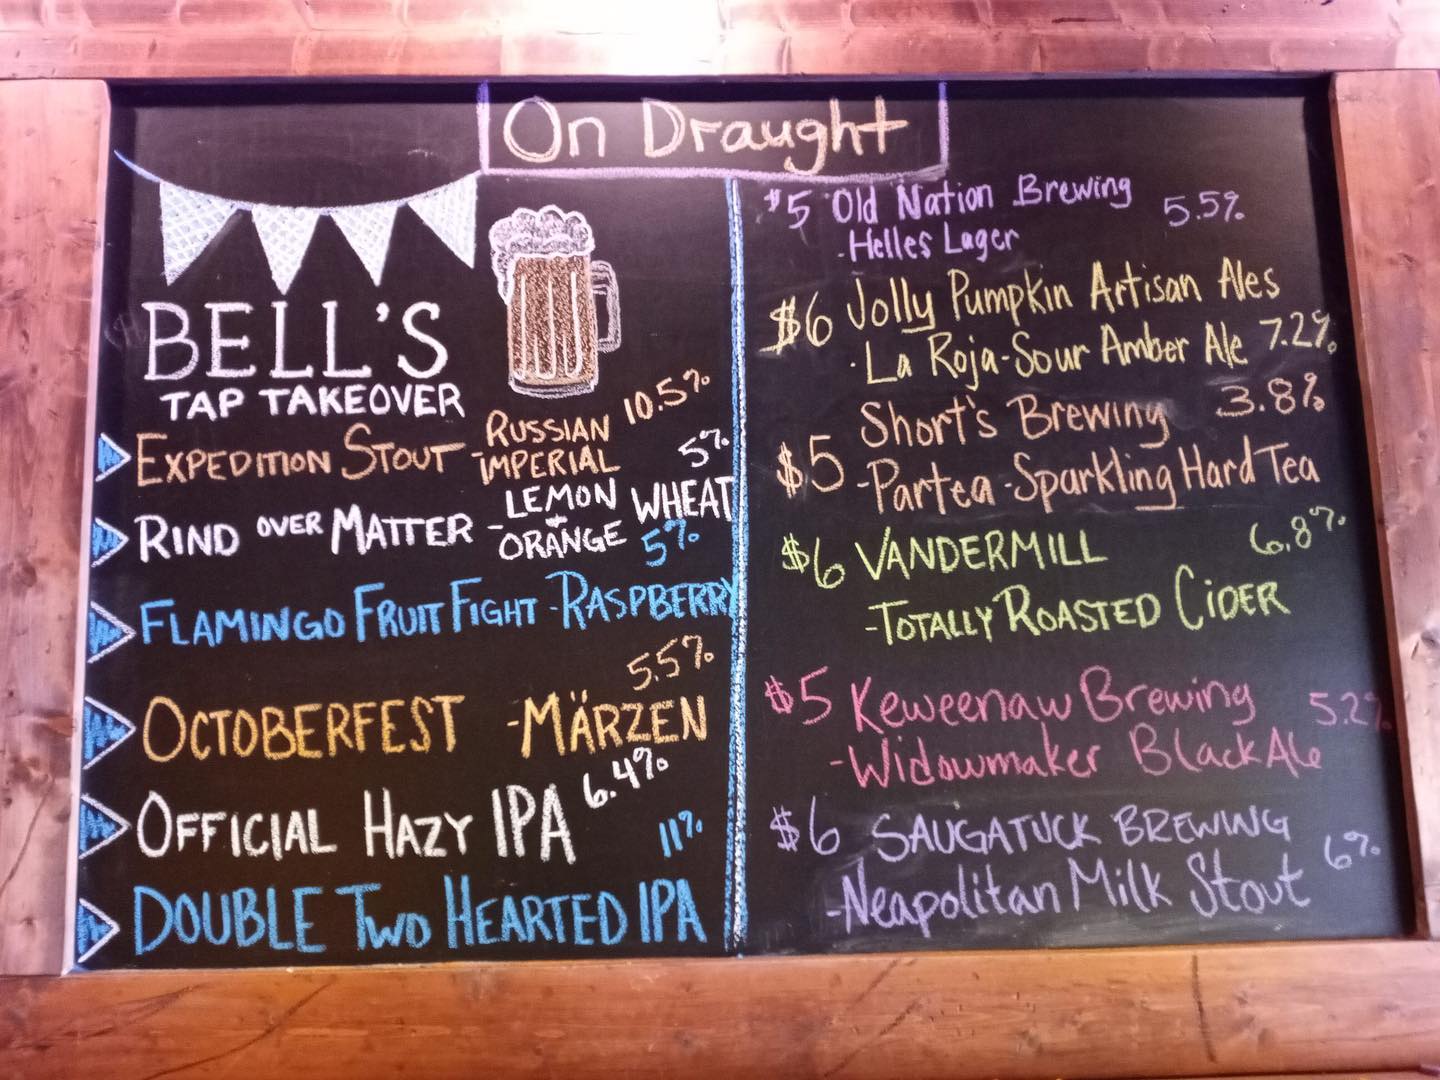 On Draught
BELL'S
TAP TAKEOVER
EXPEDITION STOUT - RUSSIAN IMPERIAL 10.5%
RIND OVER MATTER - LEMON + ORANGE WHEAT 5%
FLAMINGO FRUIT FIGHT - RASPBERRY 5%
OCTOBERFEST - MÄRZEN 5.5%
OFFICIAL HAZY IPA 6.4%
DOUBLE TWO HEARTED IPA 11%
$5 Old Nation Brewing 5.5%
- Helles Lager
$6 Jolly Pumpkin Artisan Ales
- La Roja - Sour Amber Ale 7.2%
$5 Short's Brewing 3.8%
- Partea - Sparkling Hard Tea
$6 VANDERMILL 6.8%
- TOTALLY ROASTED CIDER
$5 Keweenaw Brewing 5.2%
- Widowmaker Black Ale
$6 SAUGATUCK BREWING 6%
- Neapolitan Milk Stout